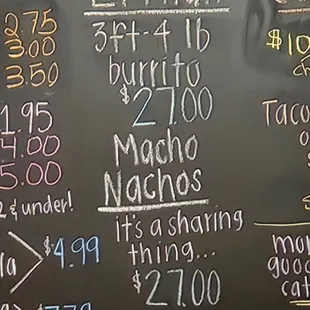 2.75
3.00
3.50
1.95
4.00
5.00
& under!
$4.99
3ft-4 lb
burrito
$27.00
Macho
Nachos
it's a sharing
thing...
$27.00
$10
Taco